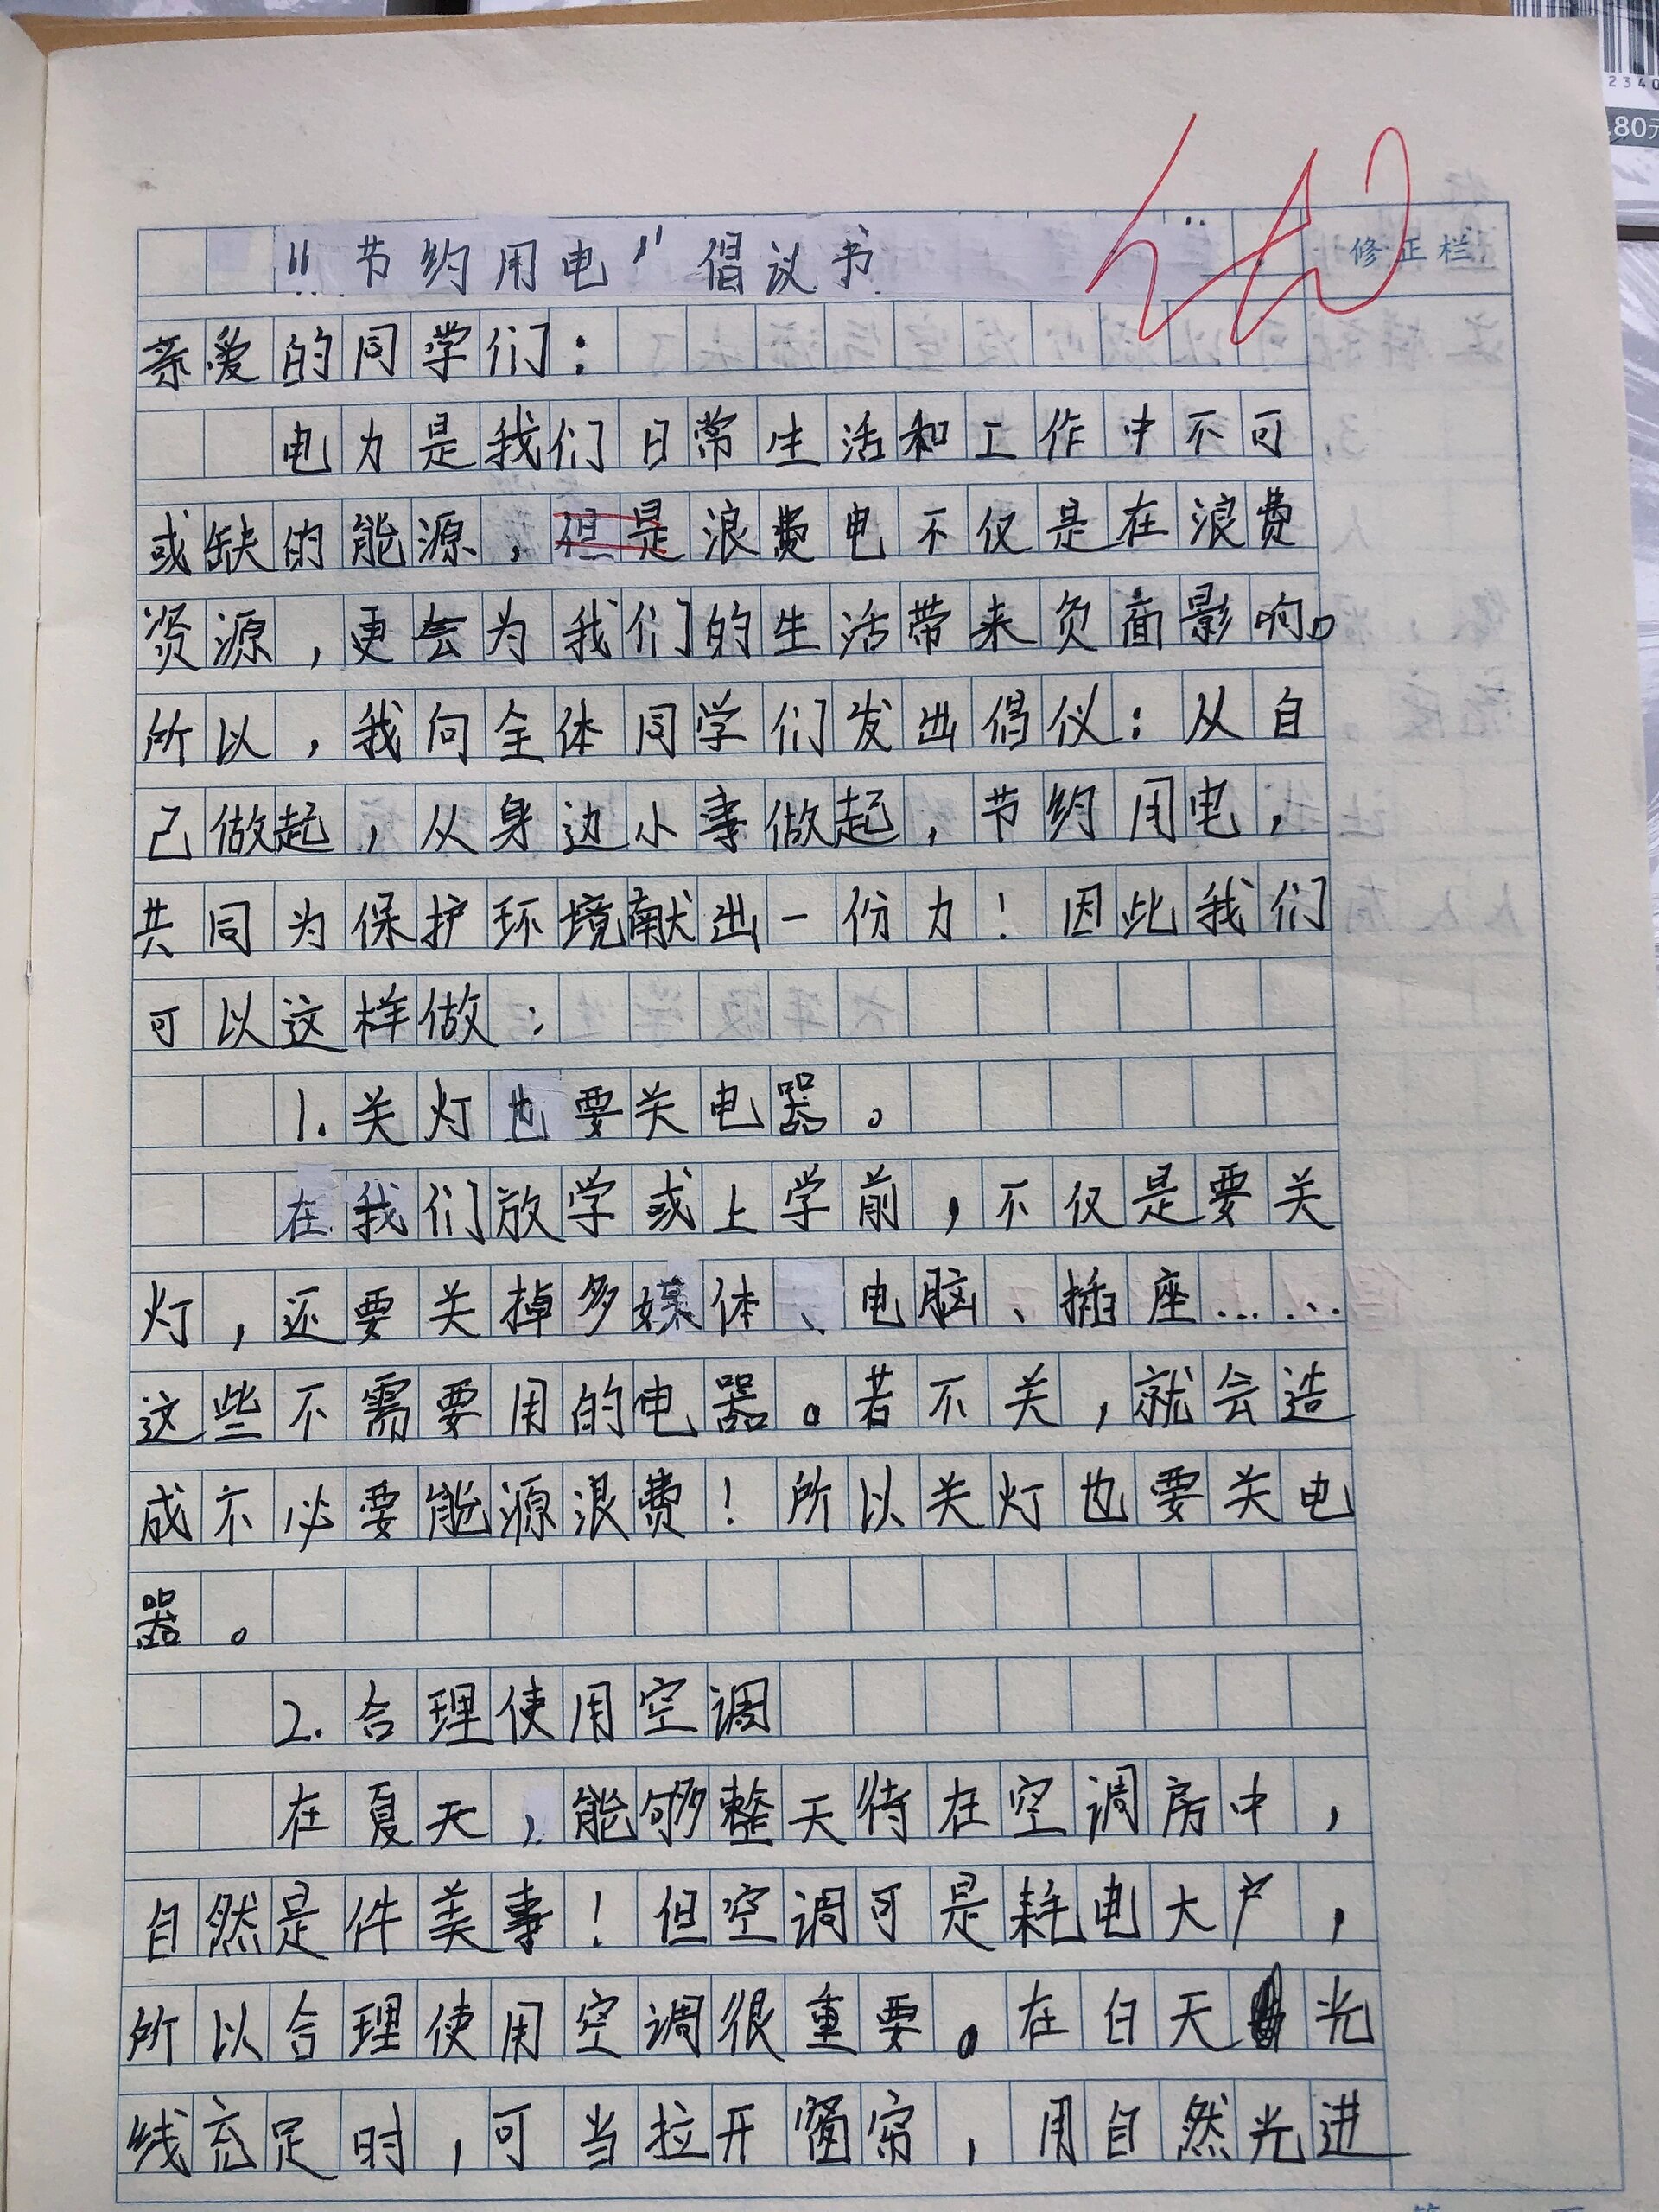 “节约用电”倡议书
修正栏
亲爱的同学们：
电力是我们日常生活和工作中不可
或缺的能源，但是浪费电不仅是在浪费
资源，更会为我们的生活带来负面影响。
所以，我向全体同学们发出倡仪：从自
己做起，从身边小事做起，节约用电，
共同为保护环境献出一份力！因此我们
可以这样做：
1.关灯也要关电器。
在我们放学或上学前，不仅是要关
灯，还要关掉多媒体、电脑、插座……
这些不需要用的电器。若不关，就会造
成不必要能源浪费！所以关灯也要关电
器。
2.合理使用空调
在夏天，能够整天待在空调房中，
自然是件美事！但空调可是耗电大户，
所以合理使用空调很重要。在白天光
线充足时，可当拉开窗帘，用自然光进
2340
.80元